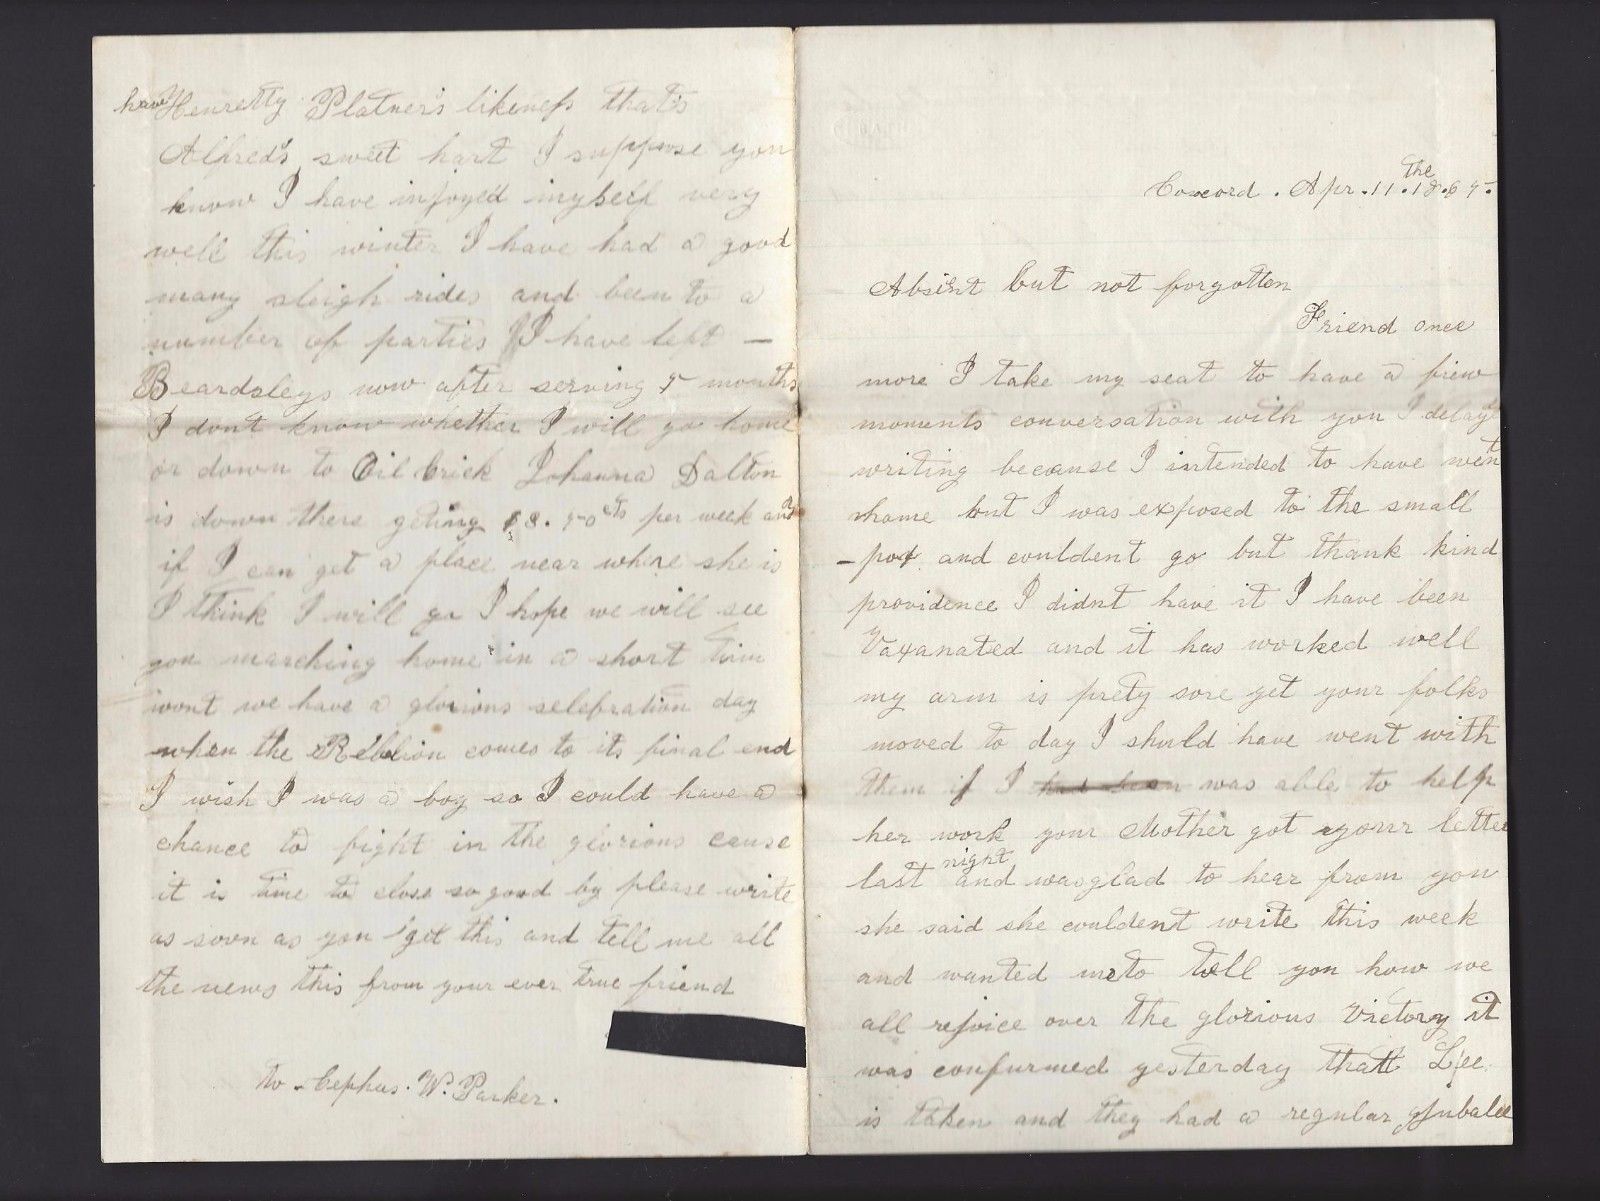 Concord. Apr. 11. the 1865.
Absent but not forgotten
Friend once
more I take my seat to have a fiew
moments conversation with you I delayd
writing because I intended to have went
home but I was exposed to the small
-pox and couldent go but thank kind
providence I didnt have it I have been
Vaxanated and it has worked well
my arm is prety sore yet your folks
moved to day I should have went with
them if I had been was able to help
her work your Mother got your letter
last night and was glad to hear from you
she said she couldent write this week
and wanted me to tell you how we
all rejoice over the glorious victory it
was confurmed yesterday thatt Lee
is taken and they had a regular Jubalee
have Henretty Platner's likeness that's
Alfred's sweet hart I suppose you
know I have injoyed myself very
well this winter I have had a good
many sleigh rides and been to a
number of parties I have left -
Beardsleys now after serving 5 months
I dont know whether I will go home
or down to Oil Crick Johanna Dalton
is down there geting $3.50 cts per week and
if I can get a place near where she is
I think I will go I hope we will see
you marching home in a short tim
wont we have a glorious selebration day
when the Rebelion comes to its final end
I wish I was a boy so I could have a
chance to fight in the glorious cause
it is time to close so good by please write
as soon as you get this and tell me all
the news this from your ever true friend
to - Cephus. W. Parker.